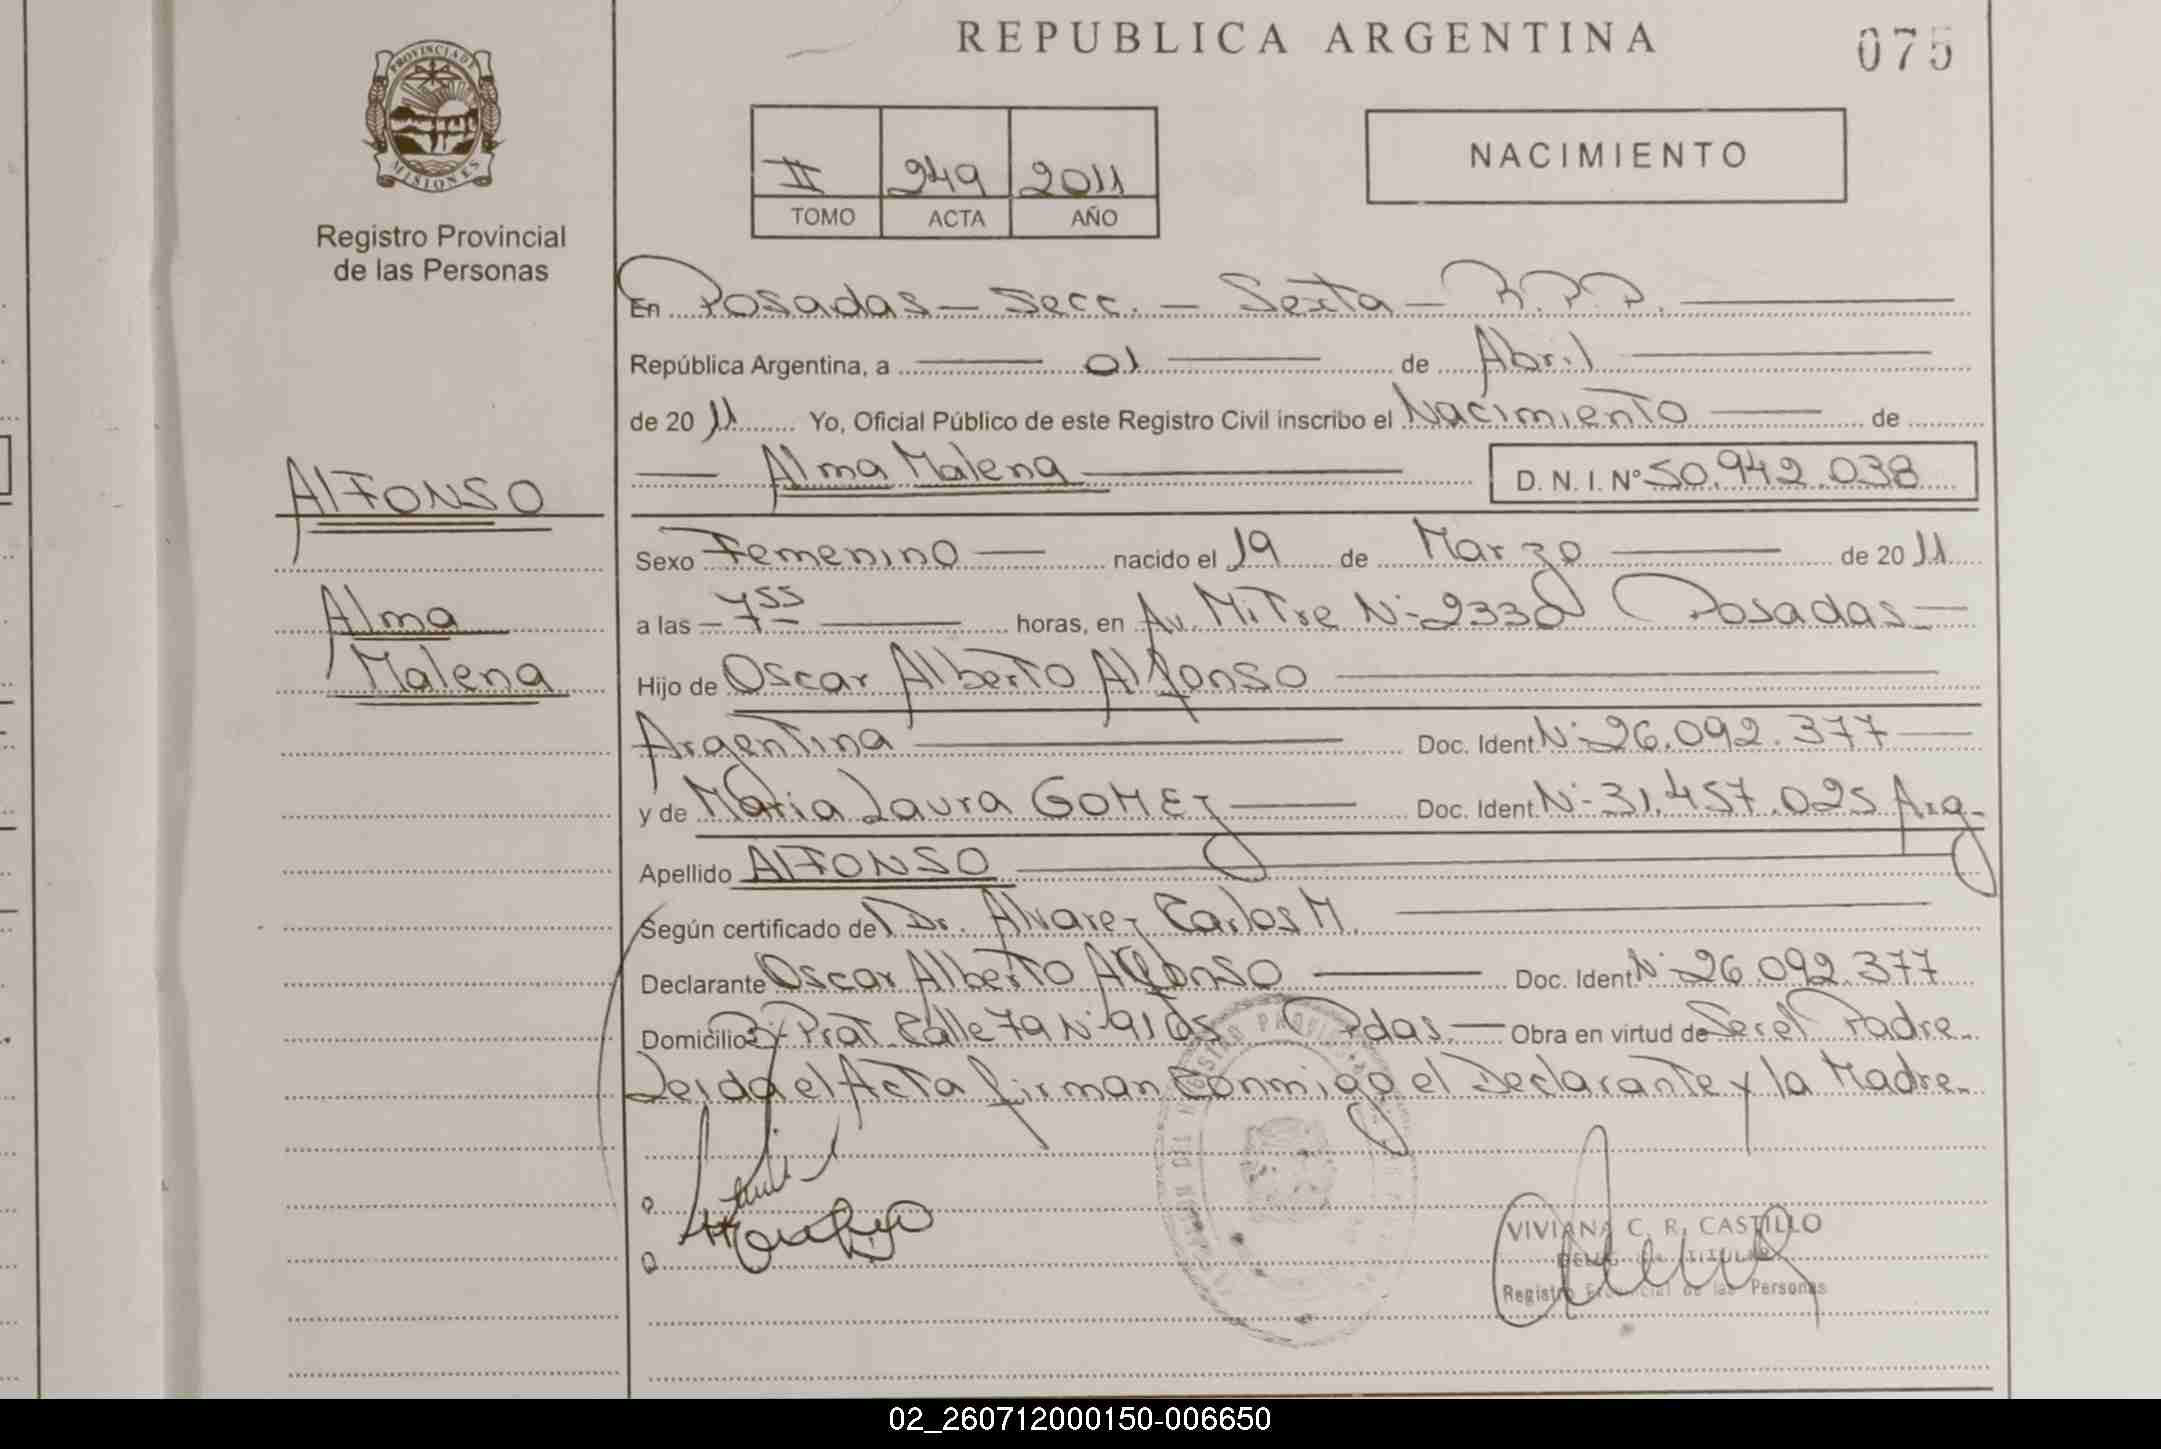 REPUBLICA ARGENTINA
075
PROVINCIA DE
MISIONES
Registro Provincial
de las Personas
II 249 2011
TOMO ACTA AÑO
NACIMIENTO
En Posadas - Secc. - Sexta - R.P.P.
República Argentina, a 01 de Abril
de 20 11 Yo, Oficial Público de este Registro Civil inscribo el Nacimiento de
Alma Malena D. N. I. Nº 50.942.038
ALFONSO
Alma
Malena
Sexo Femenino nacido el 19 de Marzo de 20 11
a las 7 55 horas, en Av. Mitre N- 2330 Posadas
Hijo de Oscar Alberto Alfonso
Argentina Doc. Ident. N- 26.092.377
y de Maria Laura GOMEZ Doc. Ident. N- 31.457.025 Arg-
Apellido ALFONSO
Según certificado del Dr. Alvarez Carlos M.
Declarante Oscar Alberto Alfonso Doc. Ident. N- 26.092.377
Domicilio Prat Calle 79 N- Pdas. Obra en virtud de Ser el Padre
Leida el Acta firman Conmigo el Declarante y la Madre
VIVIANA C. R. CASTILLO
TITULAR
Registro Provincial de las Personas
02_260712000150-006650